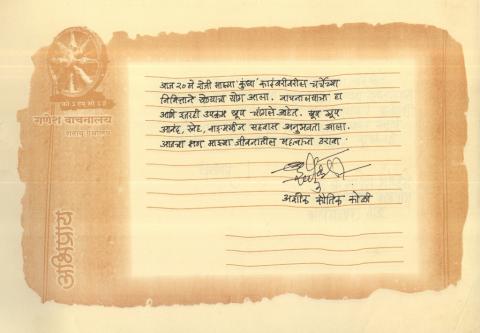 गणेश वाचनालय
अभिप्राय
आज २० मे रोजी माझ्या 'कुंधा' कादंबरीवरील चर्चेच्या
निमित्ताने येण्याचा योग आला. वाचनालयाचा हा
आणि इतरही उपक्रम खूप चांगले आहेत. खूप खूप
आनंद, स्नेह, वाङ्मयीन सहवास अनुभवता आला.
आजचा क्षण माझ्या जीवनातील महत्वाचा ठरावा
अशोक कौतिक कोळी